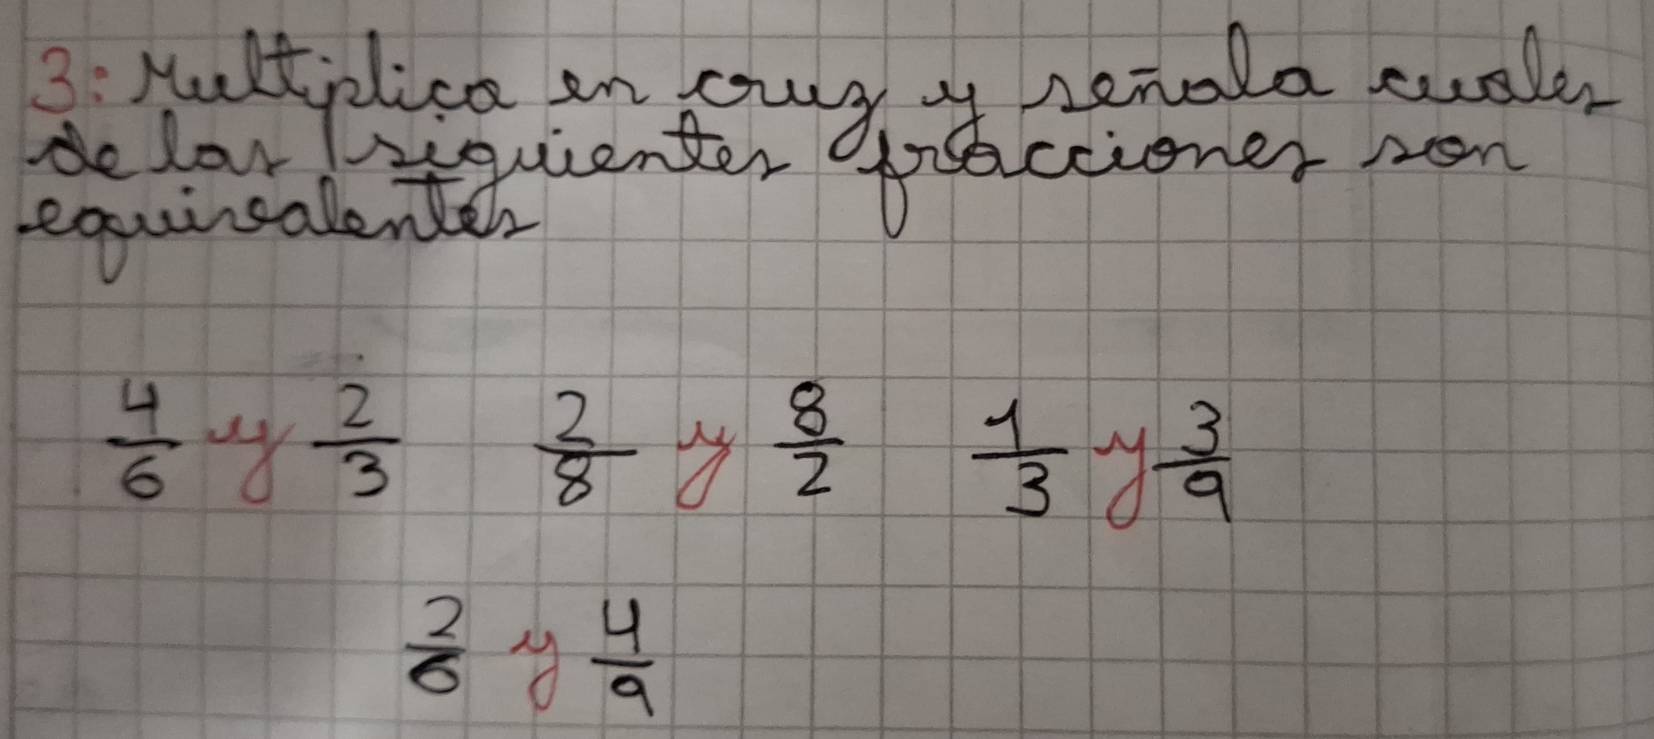 3: Multiplica en cruz y señala cuales
de las siguientes fracciones son
equivalentes
4/6 y 2/3 2/8 y 8/2 1/3 y 3/9
2/6 y 4/9